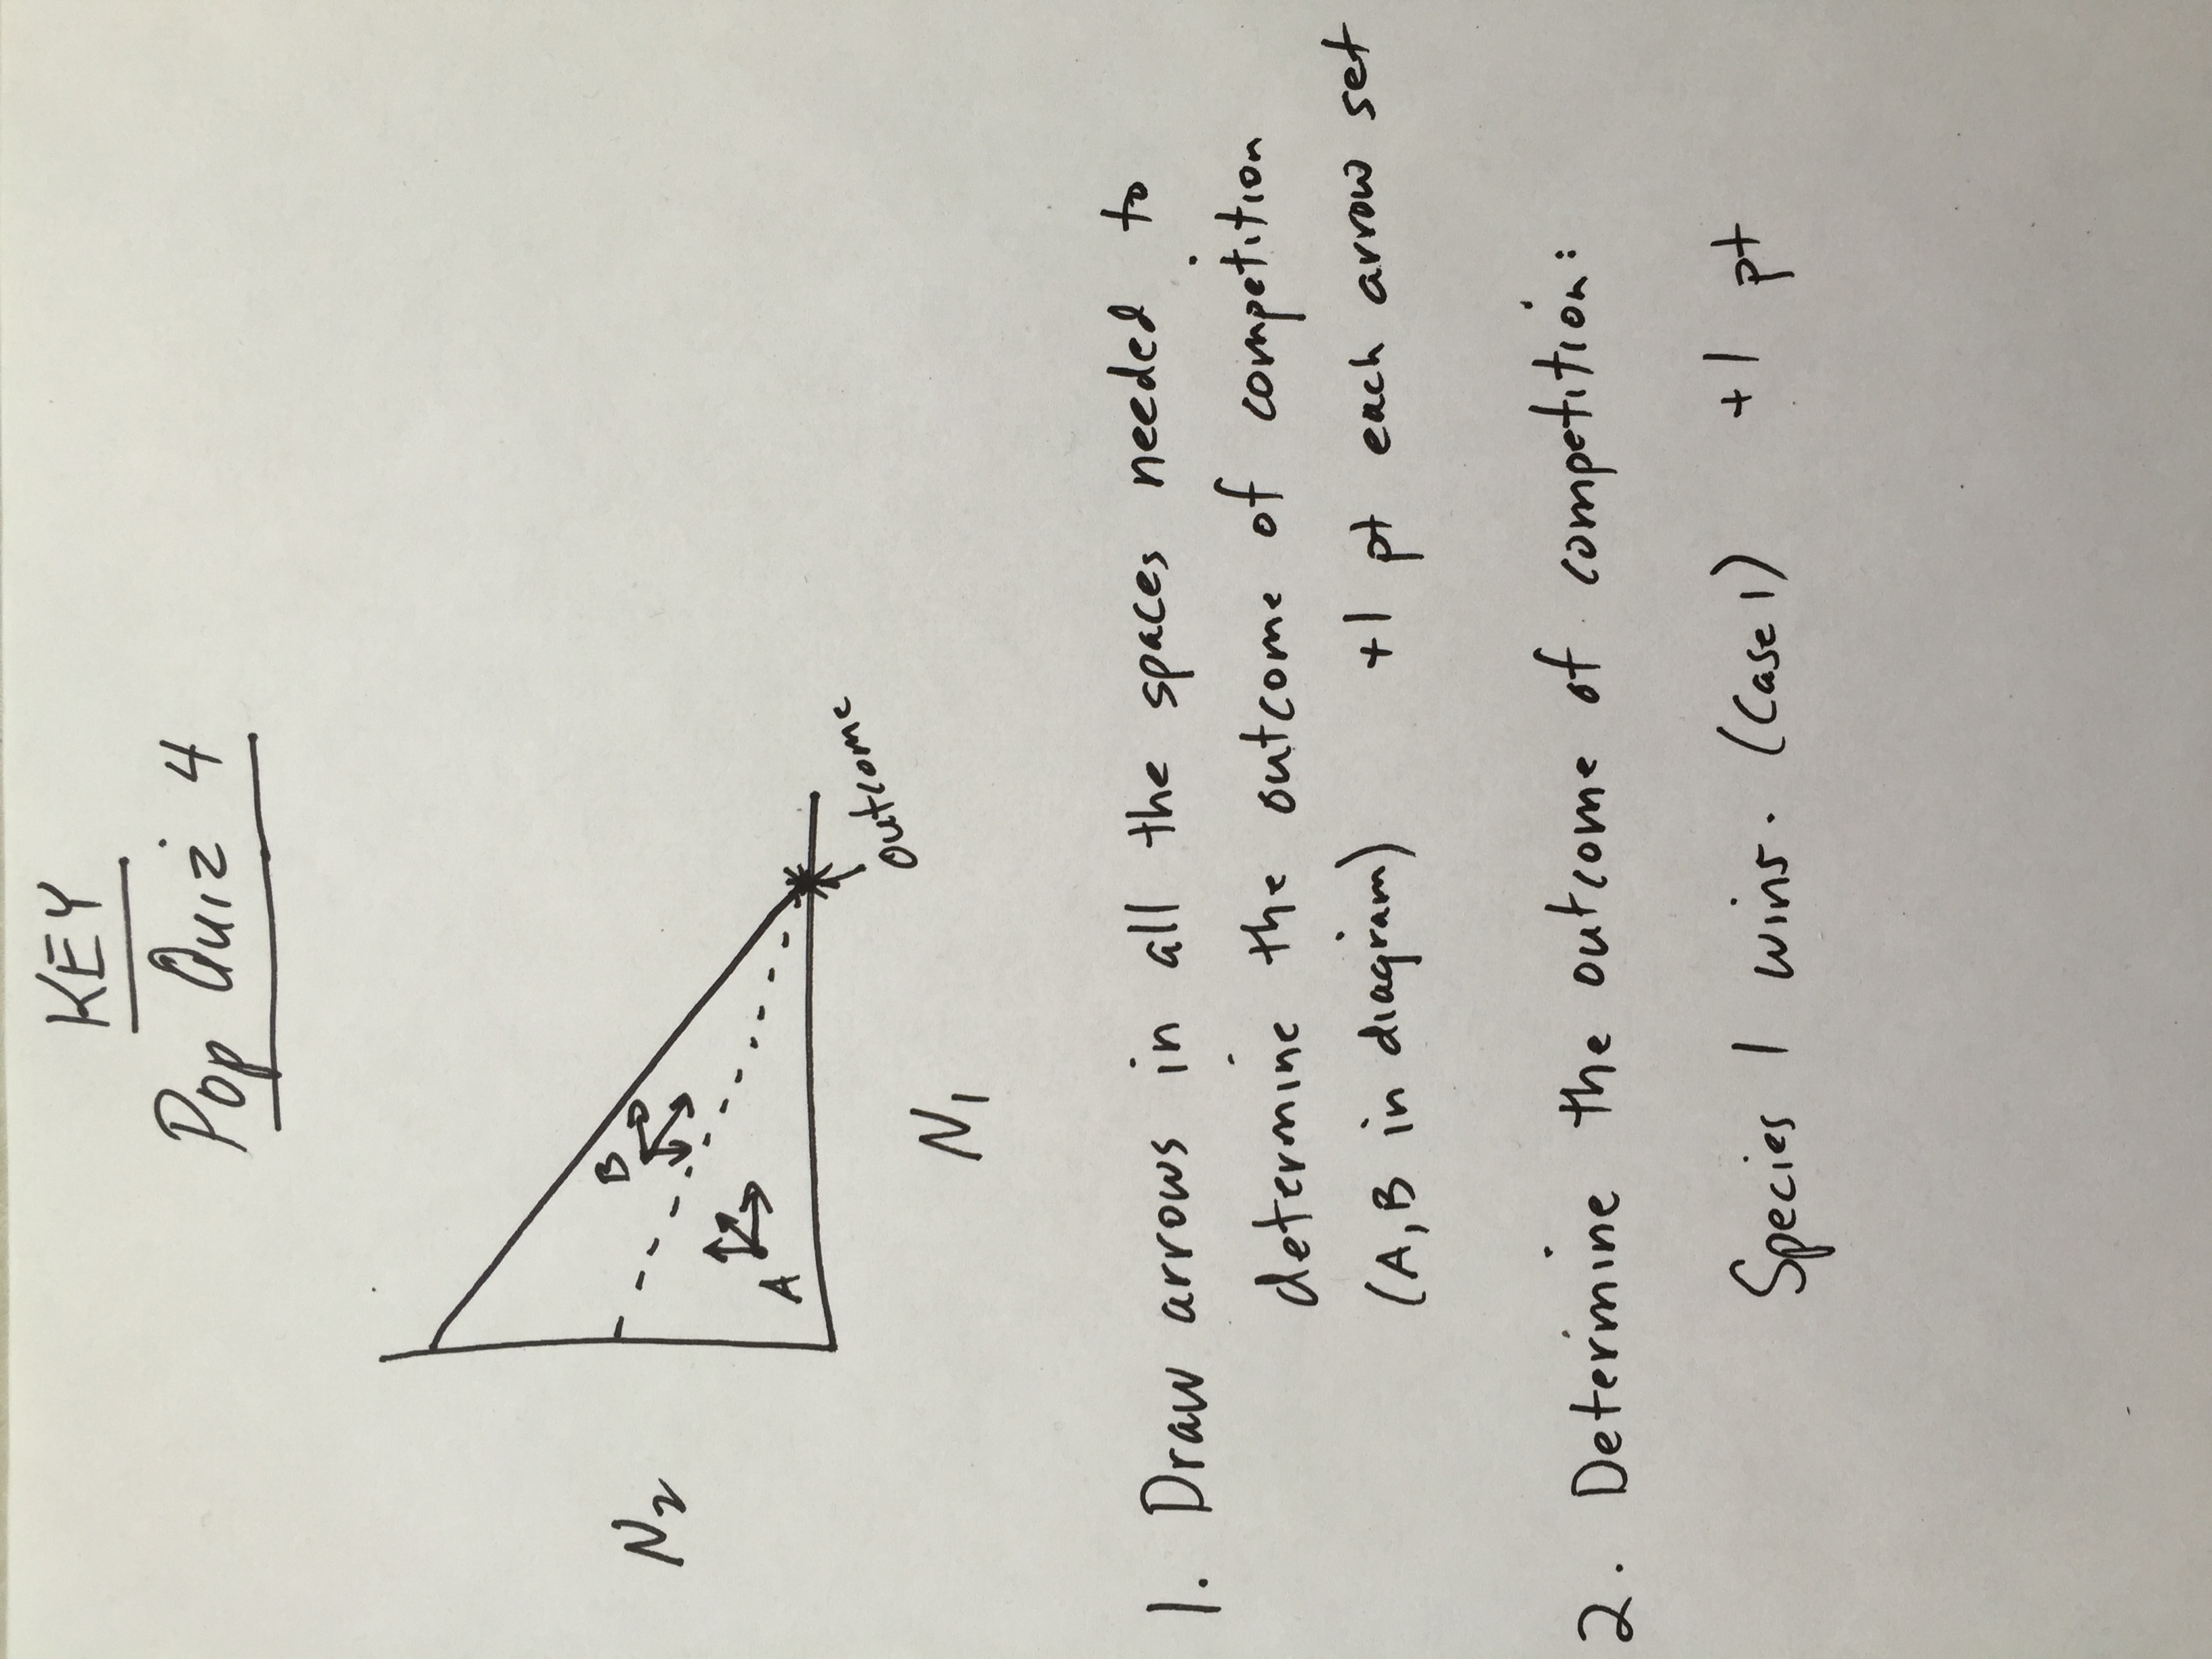 KEY
Pop Quiz 4
N2
B
A
outcome
N1
1. Draw arrows in all the spaces needed to
determine the outcome of competition
(A,B in diagram) +1 pt each arrow set
2. Determine the outcome of competition:
Species 1 wins. (Case 1) +1 pt